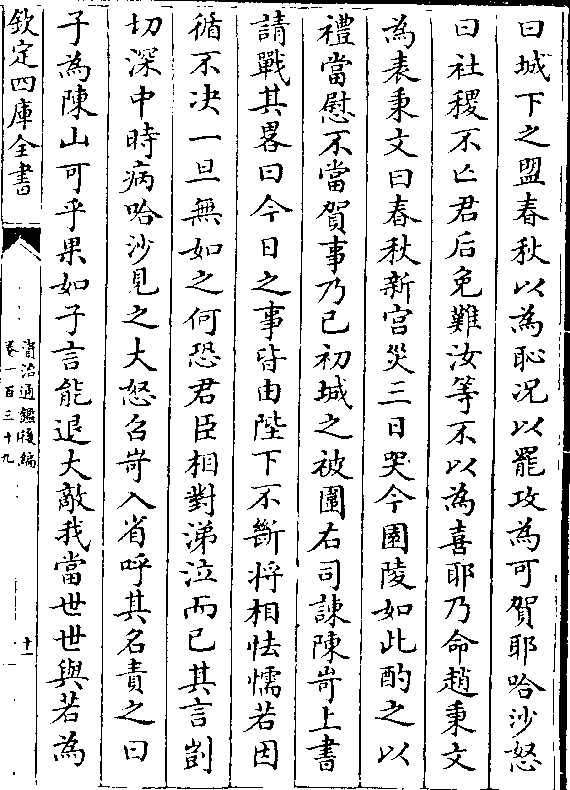 曰城下之盟春秋以為恥况以罷攻為可賀耶哈沙怒
曰社稷不亡君后免難汝等不以為喜耶乃命趙秉文
為表秉文曰春秋新宫災三日哭今園陵如此酌之以
禮當慰不當賀事乃已初城之被圍右司諫陳岢上書
請戰其畧曰今日之事皆由陛下不斷将相怯懦若因
循不决一旦無如之何恐君臣相對涕泣而已其言剴
切深中時病哈沙見之大怒召岢入省呼其名責之曰
子為陳山可乎果如子言能退大敵我當世世與若為
欽定四庫全書
資治通鑑後編
卷一百三十九
十一